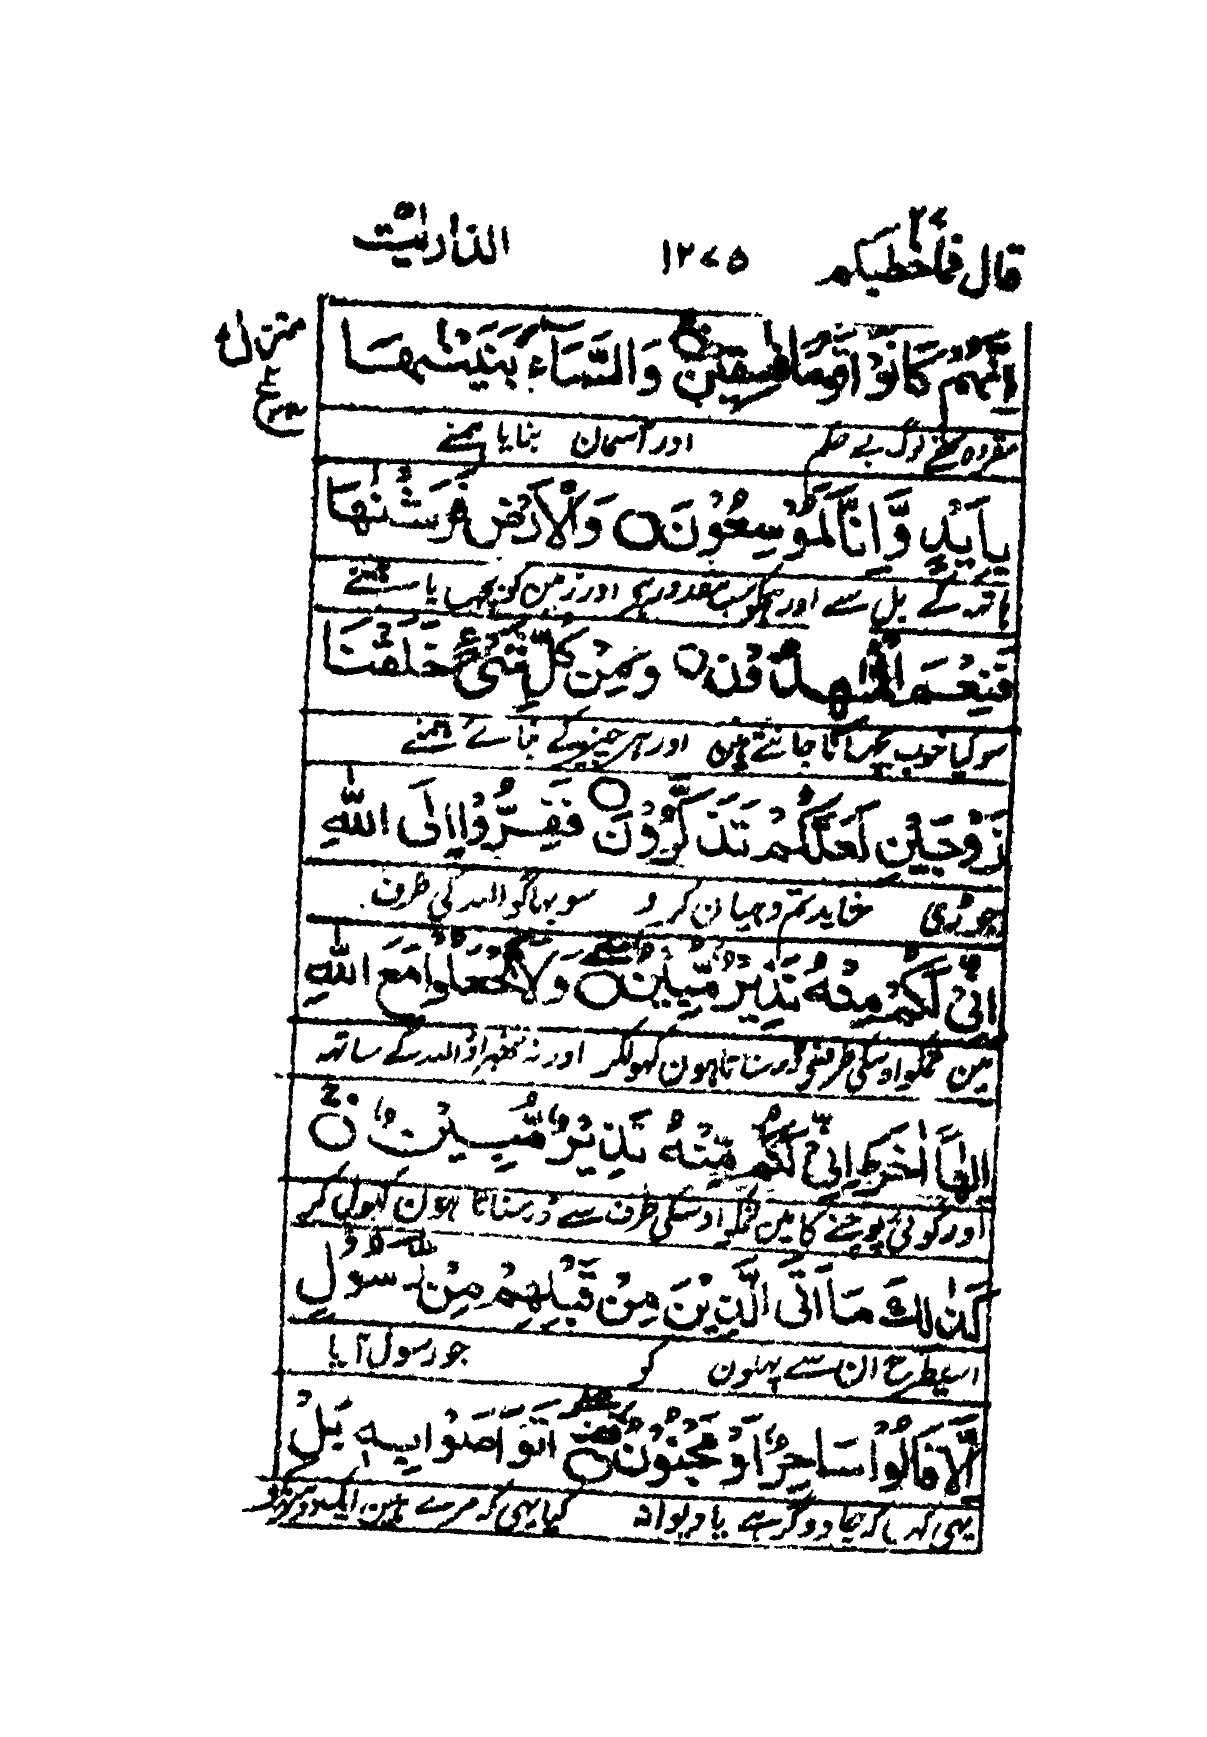 قال فماخطبکم ۲۷ ۱۲۷۵ الذاریٰت ۵۱
منزل
اِنَّهُمْ كَانُوْا قَوْمًا فٰسِقِيْنَ ○ وَالسَّمَآءَ بَنَيْنٰهَا
مقرر وہ تھے لوگ بے حکم اور آسمان بنایا ہمنے
بِاَيْىدٍ وَّاِنَّا لَمُوْسِعُوْنَ ○ وَالْاَرْضَ فَرَشْنٰهَا
ہاتھ کے بل سے اور ہمکو سب مقدور ہے اور زمین کو بچھایا ہمنے
فَنِعْمَ الْمٰهِدُوْنَ ○ وَمِنْ كُلِّ شَىْءٍ خَلَقْنَا
سو کیا خوب بچھانا جانتے ہین اور ہر چیز کے بنائے ہمنے
زَوْجَيْنِ لَعَلَّكُمْ تَذَكَّرُوْنَ ○ فَفِرُّوْٓا اِلَى اللّٰهِ
جوڑی شاید تم دھیان کرو سو بھاگو اللہ کی طرف
اِنِّىْ لَكُمْ مِنْهُ نَذِيْرٌ مُّبِيْنٌ ○ وَلَا تَجْعَلُوْا مَعَ اللّٰهِ
مین تمکو اوسکی طرف سے ڈر سناتا ہون کھولکر اور نہ ٹھہراؤ اللہ کے ساتھ
اِلٰهًا اٰخَرَ اِنِّىْ لَكُمْ مِّنْهُ نَذِيْرٌ مُّبِيْنٌ ○
اور کوئی پوجنے کا مین تمکو اوسکی طرف سے ڈر سناتا ہون کھول کر
كَذٰلِكَ مَآ اَتَى الَّذِيْنَ مِنْ قَبْلِهِمْ مِّنْ رَّسُوْلٍ
اسیطرح ان سے پہلون کو جو رسول آیا
اِلَّا قَالُوْا سَاحِرٌ اَوْ مَجْنُوْنٌ ○ اَتَوَاصَوْا بِهٖ بَلْ
یہی کہا کہ جادوگر ہے یا دیوانہ کیا یہی کہ مرے ہین ایک دوسرے کو